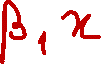 β₁ x